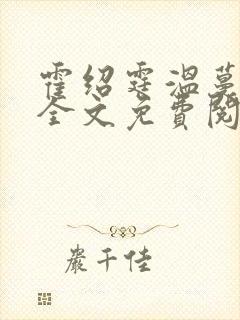 霍绍霆温蔓
全文免费阅
严千佳